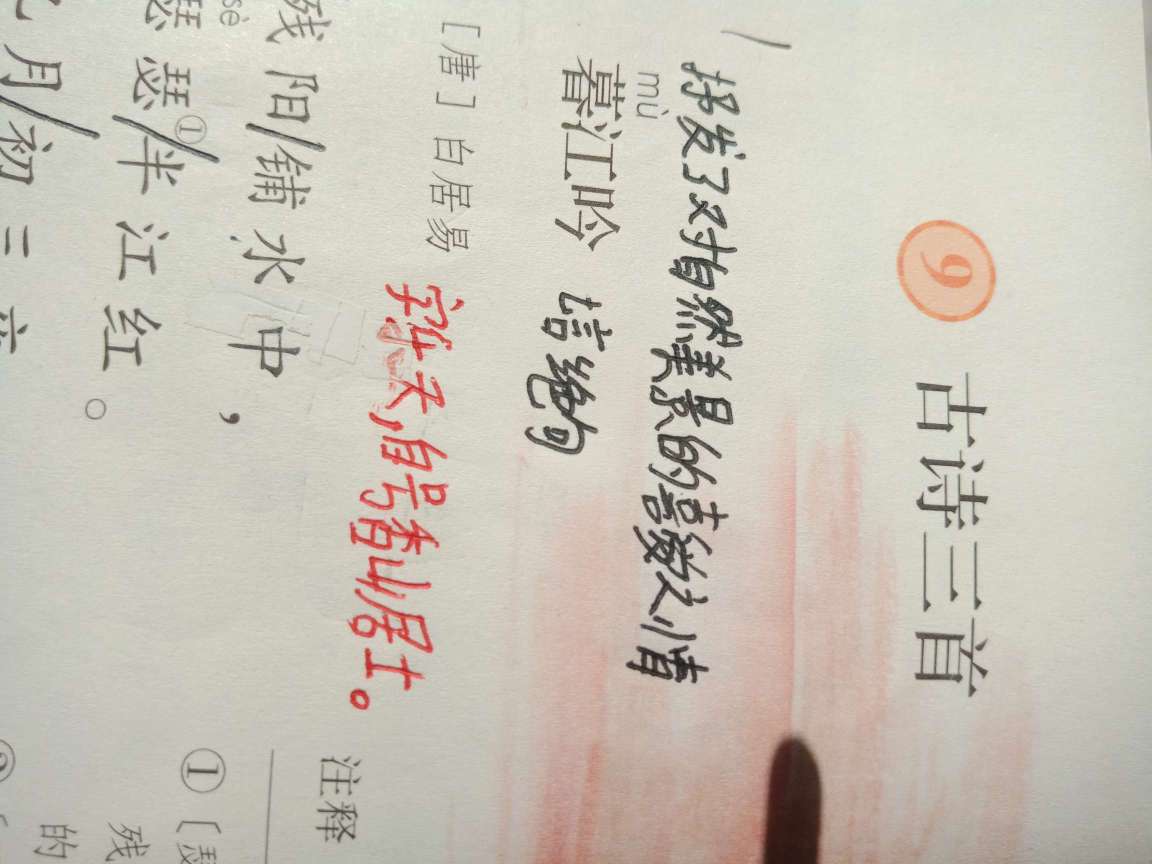 9 古诗三首
抒发了对自然美景的喜爱之情
mù
暮江吟 七言绝句
[唐] 白居易 字乐天,自号香山居士。
残阳/铺水中，
sè
瑟瑟①/半江红。
月/初三
注释
①〔瑟
残
的
②〔